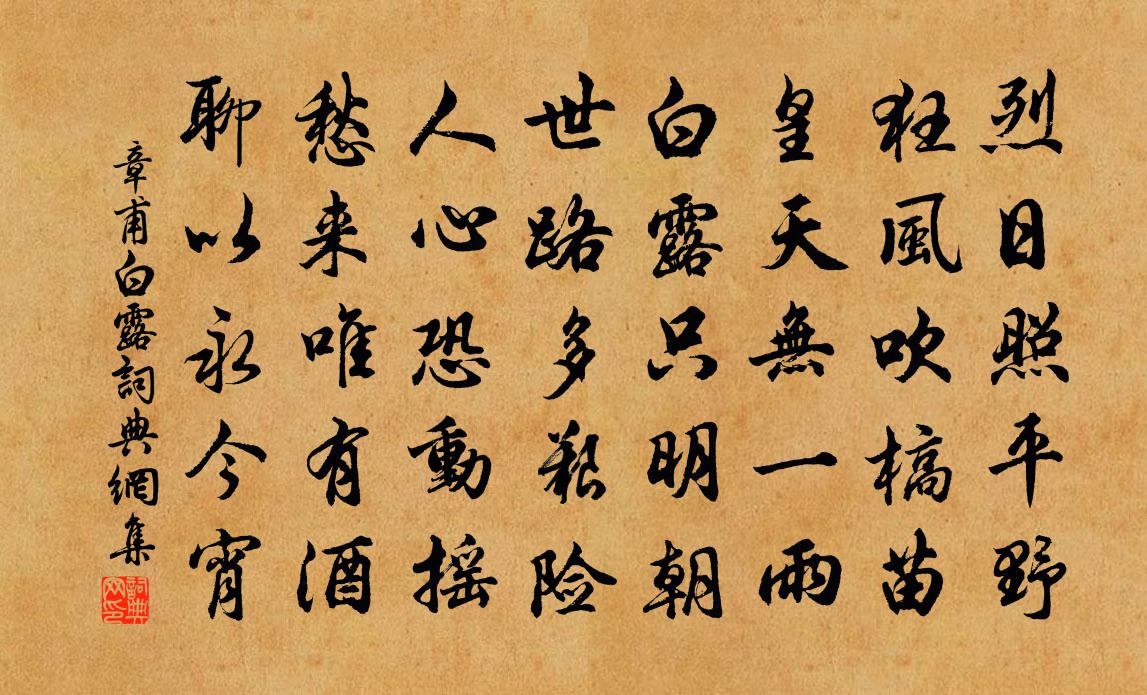 烈日照平野
狂風吹槁苗
皇天無一雨
白露只明朝
世路多艱险
人心恐動摇
愁来唯有酒
聊以永今宵
章甫白露詞典網集
詞典网印